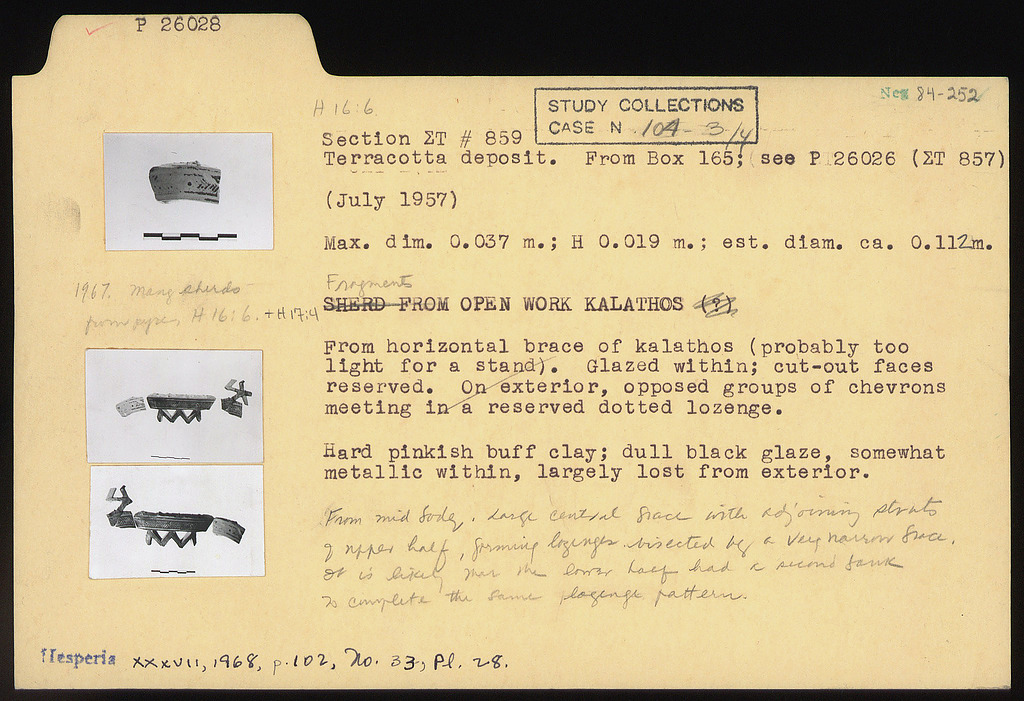 P 26028
Neg 84-252
STUDY COLLECTIONS
CASE N 104-3/4
H 16:6
Section ΣT # 859
Terracotta deposit. From Box 165; see P 26026 (ΣT 857)
(July 1957)
Max. dim. 0.037 m.; H 0.019 m.; est. diam. ca. 0.112m.
1967. Many sherds
from pyre, H 16:6. + H 17:4
Fragments
SHERD FROM OPEN WORK KALATHOS (?)
From horizontal brace of kalathos (probably too
light for a stand). Glazed within; cut-out faces
reserved. On exterior, opposed groups of chevrons
meeting in a reserved dotted lozenge.
Hard pinkish buff clay; dull black glaze, somewhat
metallic within, largely lost from exterior.
From mid body. Large central brace with adjoining struts
of upper half, forming lozenges bisected by a very narrow brace.
It is likely that the lower half had a second
to complete the same lozenge pattern.
Hesperia XXXVII, 1968, p. 102, No. 33, Pl. 28.